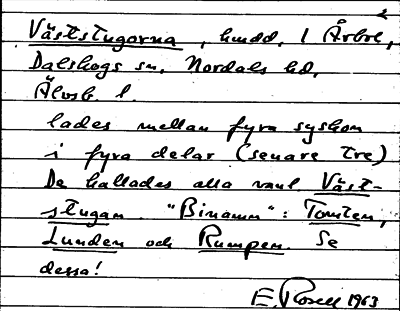 Väststugorna, hmdd. i Årbol,
Dalskogs sn. Nordals hd,
Älvsb. l.
lades mellan fyra syskon
i fyra delar (senare tre)
De kallades alla vanl. Väst-
stugan. "Binamn": Tomten,
Lunden och Rumpen. Se
dessa!
E. Rosell 1963